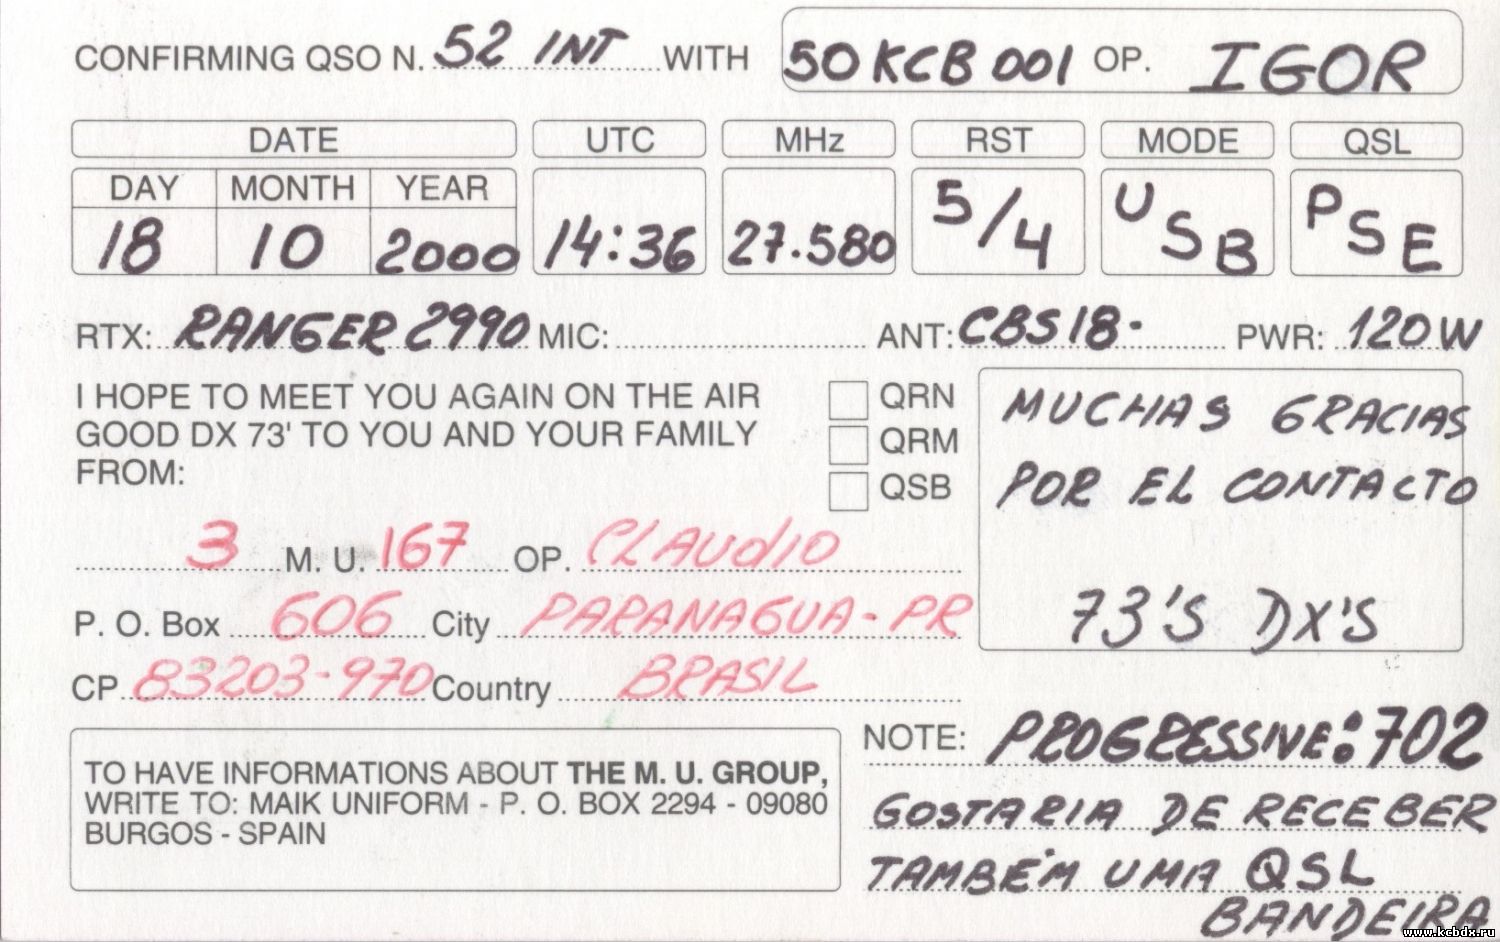 CONFIRMING QSO N. 52 INT WITH 50 KCB 001 OP. IGOR
DATE UTC MHz RST MODE QSL
DAY MONTH YEAR
18 10 2000 14:36 27.580 5/4 USB PSE
RTX: RANGER 2990 MIC: ANT: CBS18- PWR: 120W
I HOPE TO MEET YOU AGAIN ON THE AIR
GOOD DX 73' TO YOU AND YOUR FAMILY
FROM:
QRN
QRM
QSB
MUCHAS GRACIAS
POR EL CONTACTO
73'S DX'S
3 M. U. 167 OP. CLAUDIO
P. O. Box 606 City PARANAGUA-PR
CP 83203-970 Country BRASIL
TO HAVE INFORMATIONS ABOUT THE M. U. GROUP,
WRITE TO: MAIK UNIFORM - P. O. BOX 2294 - 09080
BURGOS - SPAIN
NOTE: PROGRESSIVE: 702
GOSTARIA DE RECEBER
TAMBÉM UMA QSL
BANDEIRA
www.kcbdx.ru